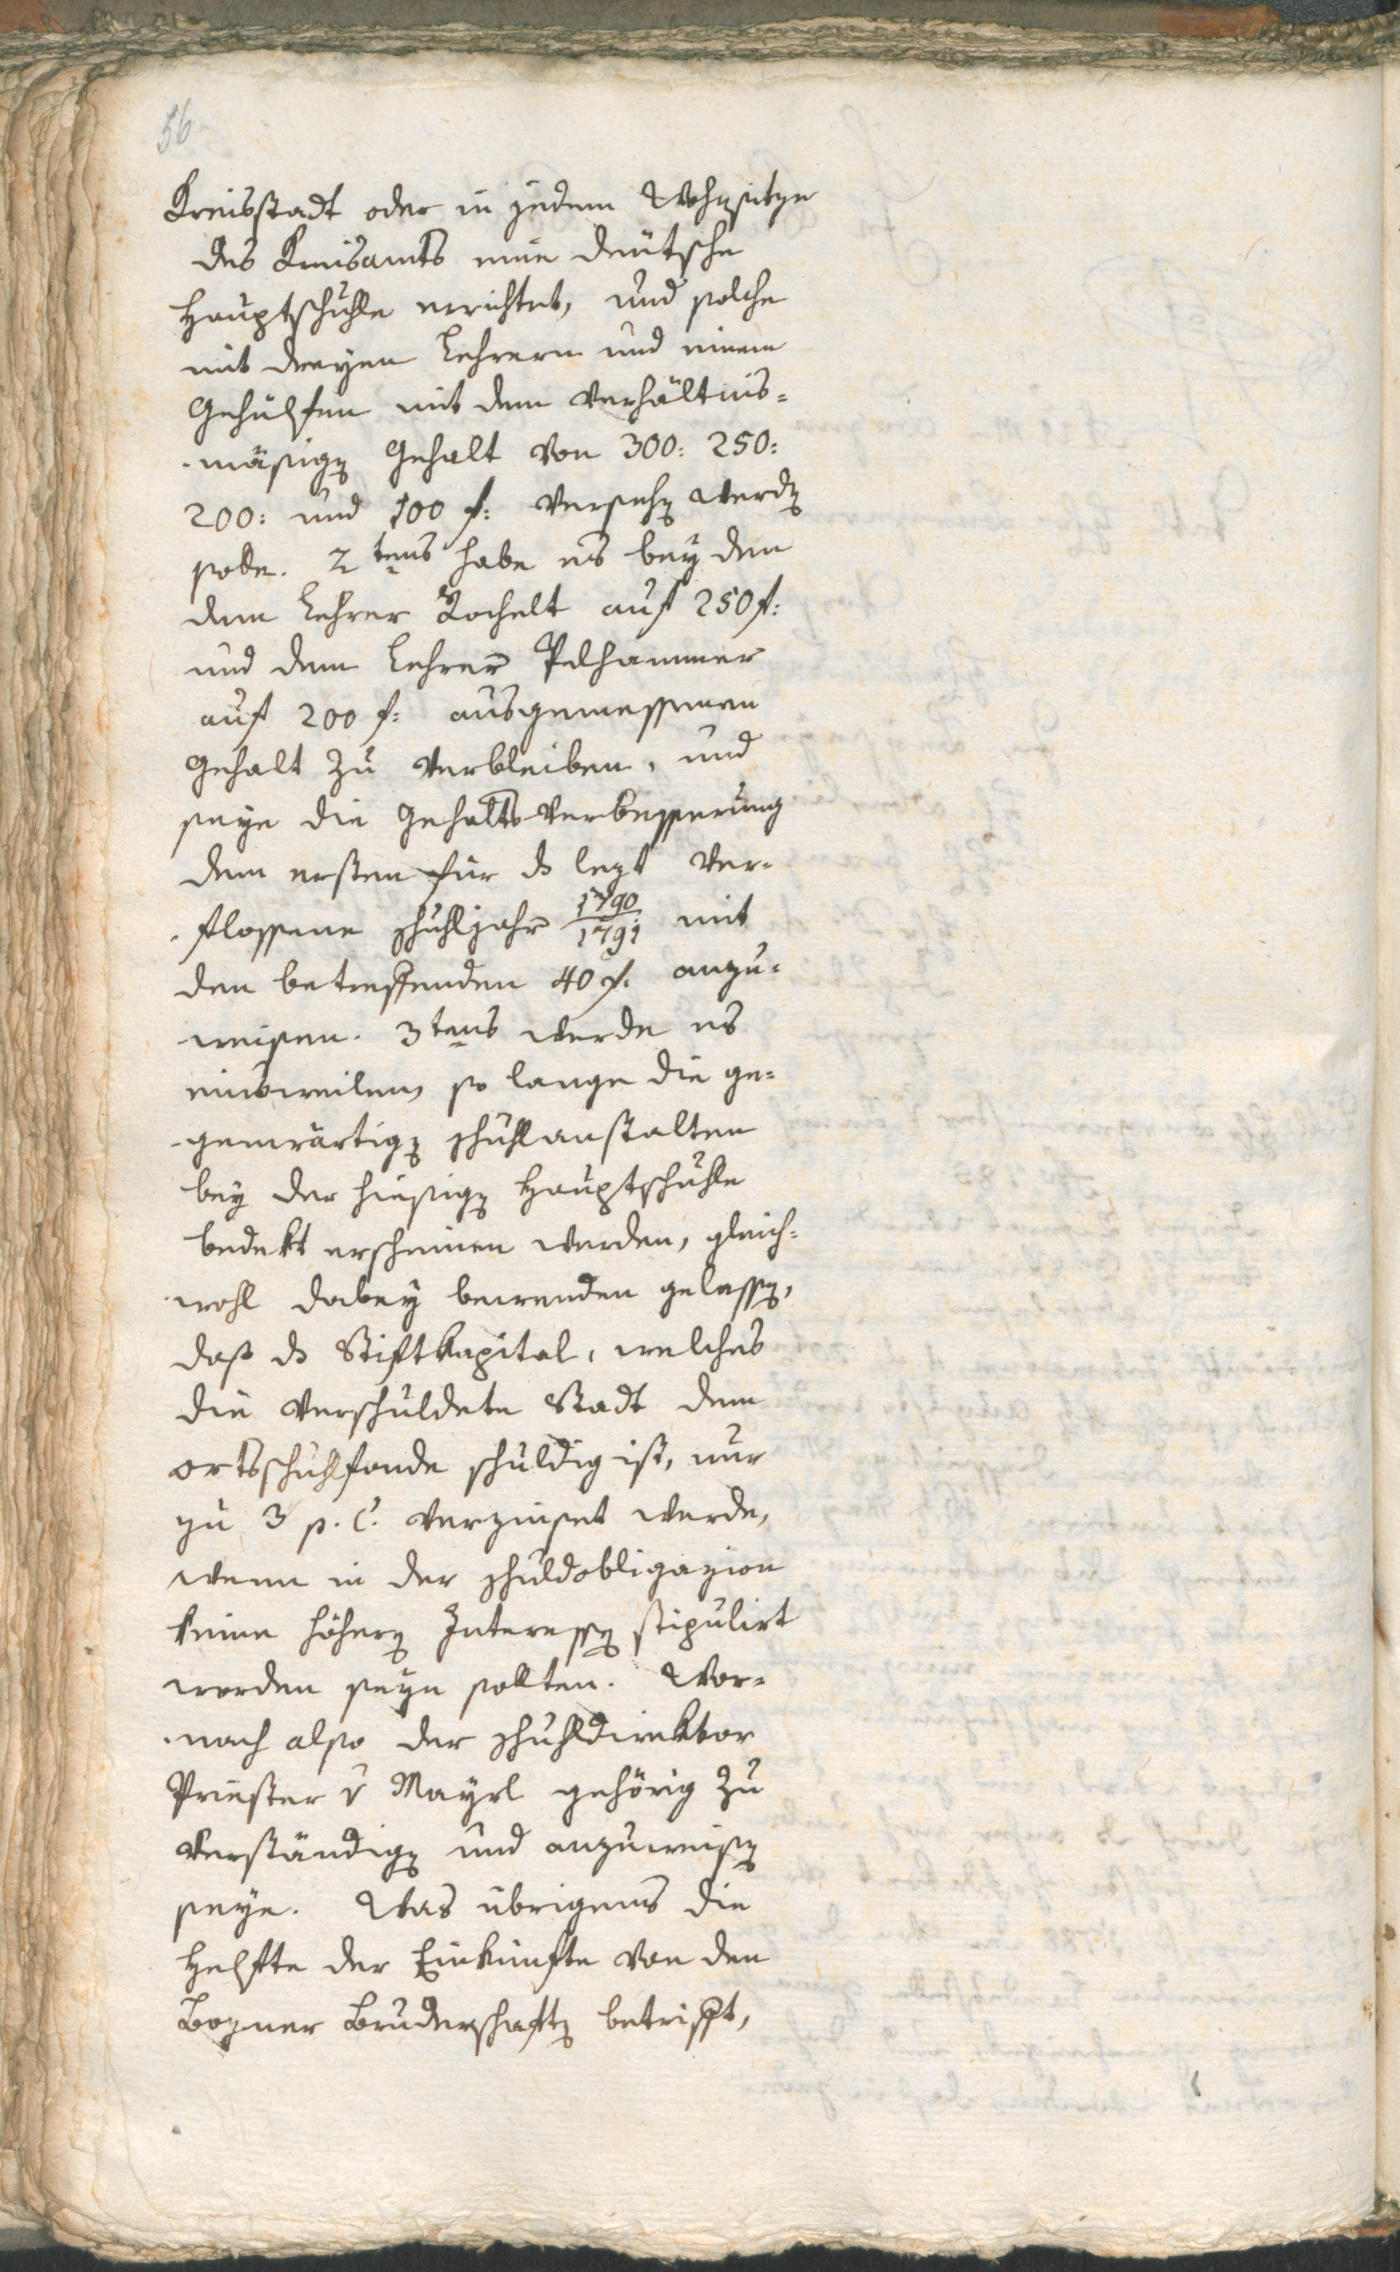 56
Kreisstadt oder in jedem Wohnsitze
des Kreisamts eine deutsche
Hauptschuhle errichtet, und solche
mit dreyen Lehrern und einem
Gehülfen mit dem verhältnis=
-mäsigen Gehalt von 300: 250:
200: und 100 f: versehen werden
solle. 2tens habe es bey den
dem Lehrer Rochelt auf 250 f:
und dem Lehrer Pelhammer
auf 200 f: ausgemessenen
Gehalt zu verbleiben, und
seye die Gehalts-Verbesserung
dem ersten für das lezt ver=
-flossene Schuhljahr 1790/1791 mit
den betreffenden 40 f. anzu=
-weisen. 3tens werde es
einsweilen, so lange die ge=
-genwärtigen Schuhlanstalten
bey der hiesigen Hauptschuhle
bedekt erscheinen werden, gleich=
-wohl dabey bewenden gelassen,
daß das Stiftkapital, welches
die verschuldete Stadt dem
Ortsschuhlfonde schuldig ist, nur
zu 3 p. C. verzinset werde,
wenn in der Schuldobligazion
keine höhern Interessen stipulirt
worden seyn sollten. Wor=
-nach also der Schuhldirektor
Priester v Mayrl gehörig zu
verständigen und anzuweisen
seye. Was übrigens die
Helfte der Einkünfte von den
Bozner Bruderschaften betrifft,